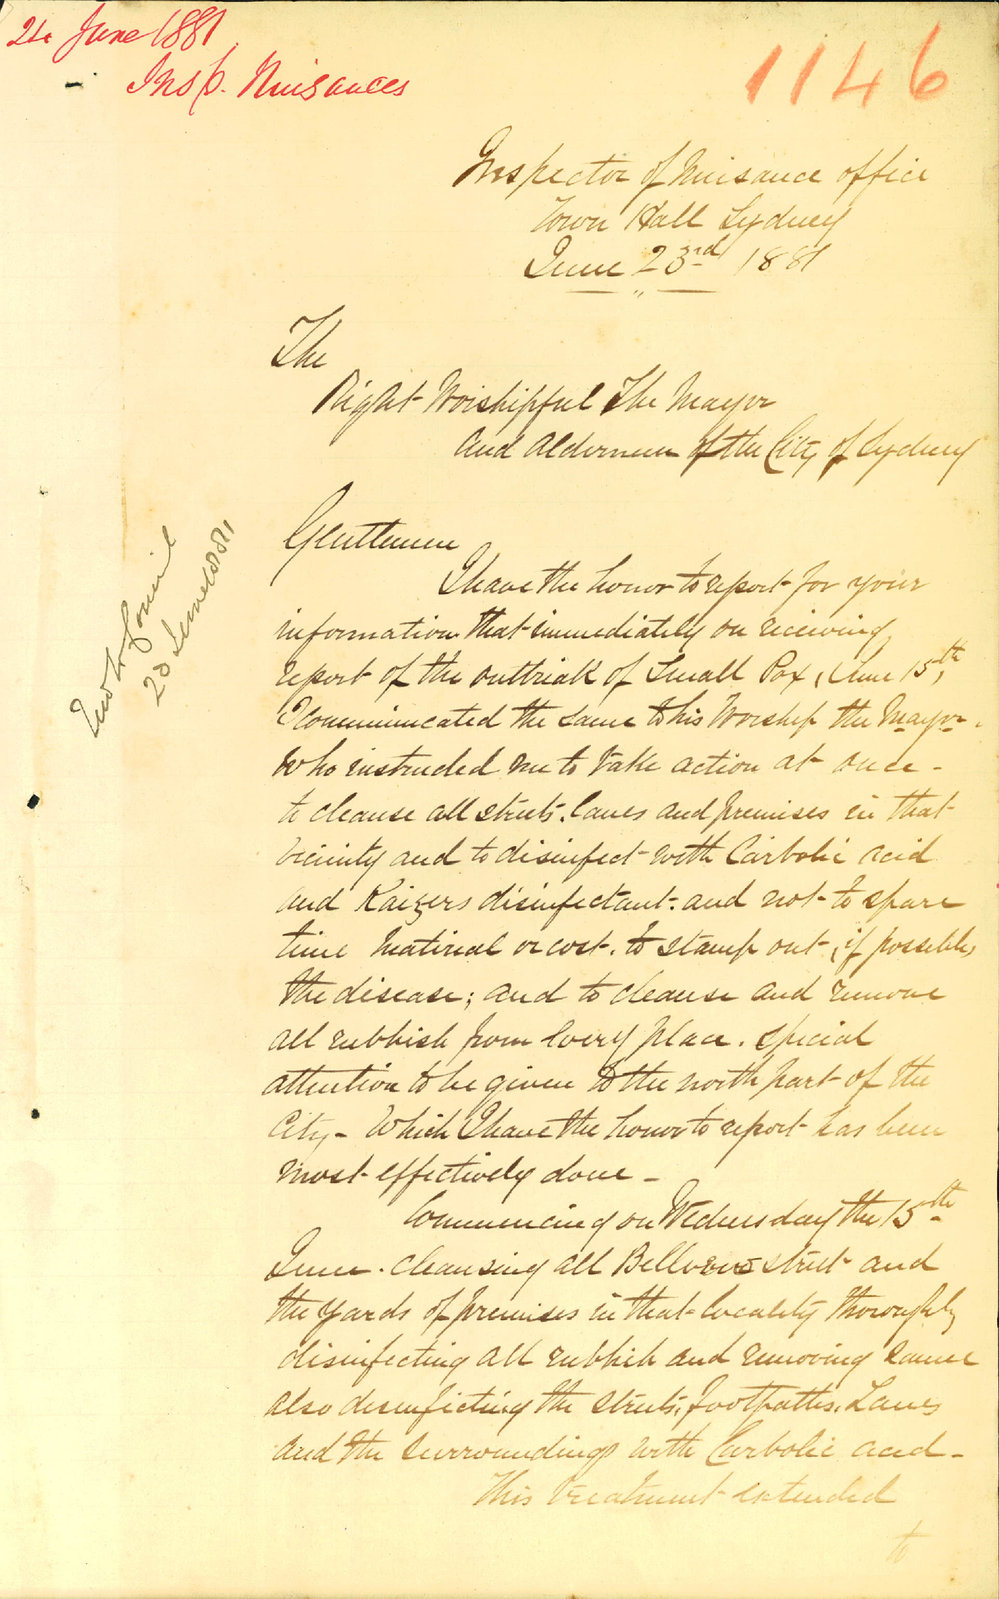 24 June 1881
Insp. Nuisances
1146
Inspector of Nuisance office
Town Hall Sydney
June 23rd 1881
The
Right Worshipful The Mayor
and Aldermen of the City of Sydney
Gentlemen
I have the honor to report for your
information that immediately on receiving
report of the outbreak of Small Pox, June 15th,
I communicated the same to his Worship the Mayor.
Who instructed me to take action at once -
to cleanse all streets, lanes and premises in that
vicinity and to disinfect with Carbolic acid
and Kaizers disinfectant. and not to spare
time material or cost. to stamp out, if possible,
the disease; and to cleanse and remove
all rubbish from every place. special
attention to be given to the north part of the
City - Which I have the honor to report has been
most effectively done -
Commencing on Wednesday the 15th
June. cleansing all Bellevue street and
the yards of premises in that locality thoroughly
disinfecting all rubbish and removing same
also disinfecting the streets, footpaths, Lanes
and the surroundings with Carbolic acid -
This treatment extended
to
Council
23 June 1881